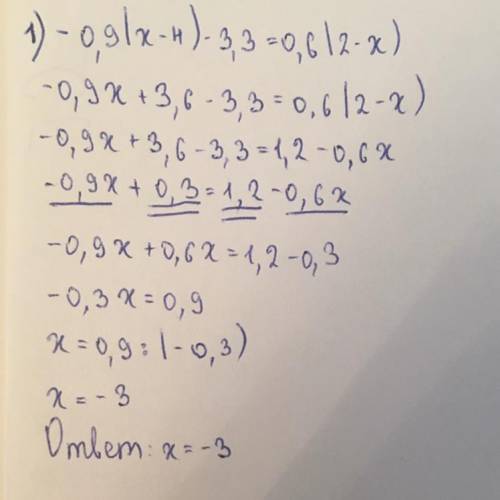 1) - 0,9(x-4)-3,3=0,6(2-x)
-0,9x+3,6-3,3=0,6(2-x)
-0,9x+3,6-3,3=1,2-0,6x
-0,9x+0,3=1,2-0,6x
-0,9x+0,6x=1,2-0,3
-0,3x=0,9
x=0,9:(-0,3)
x=-3
Ответ: x=-3